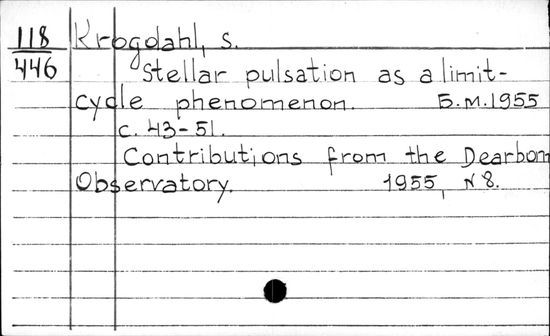 118 Krogdahl, s.
446 Stellar pulsation as a limit-
cycle phenomenon. Б.м. 1955
с. 43-51.
Contributions from the Dearborn
Observatory. 1955, N 8.